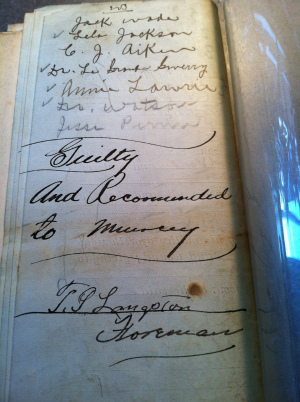 Jack Wade
Lela Jackson
C. J. Aiken
Dr. Le Gowery
Annie Lawrie
Dr. Watson
Jesse
Guilty
And Recomended
to Muercy
T. P. Langston
Foreman